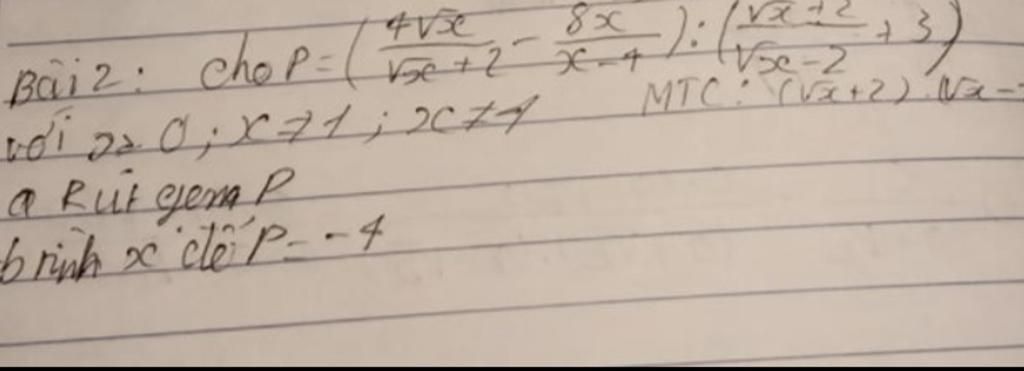 Bài 2: cho P = (4√x/(√x+2) - 8x/(x-4)) : ((√x+2)/(√x-2) + 3)
với x≥0; x≠1; x≠4 MTC: (√x+2).(√x-
a Rút gọn P
b tính x để P=-4